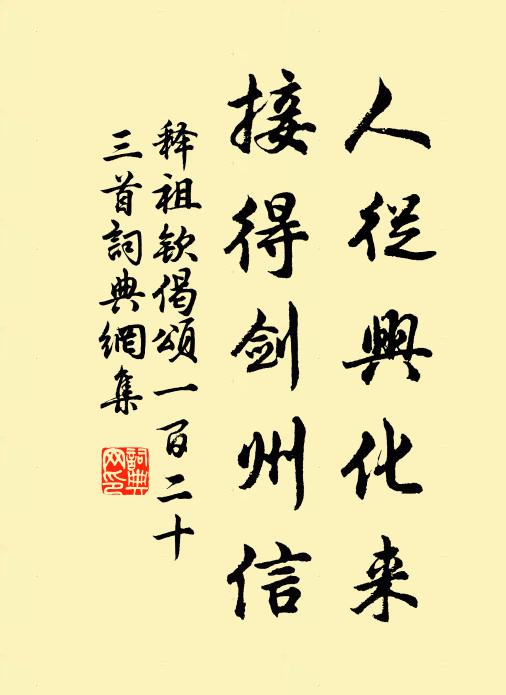 人從興化来
接得剑州信
释祖钦偈頌一百二十
三首詞典網集
詞典网印